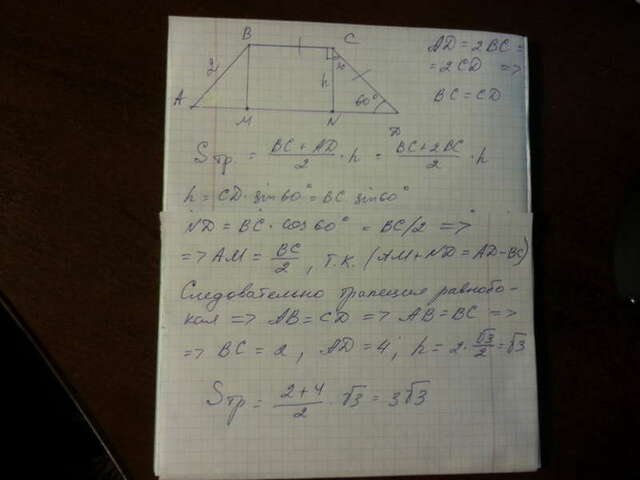 B
C
2
h
60°
A
M
N
D
AD = 2BC =
= 2CD =>
BC = CD
Sтр = BC + AD / 2 · h = BC + 2BC / 2 · h
h = CD · sin 60° = BC sin 60°
ND = BC · cos 60° = BC/2 =>
=> AM = BC / 2, т.к. (AM + ND = AD - BC)
Следовательно трапеция равнобо-
кая => AB = CD => AB = BC =>
=> BC = 2, AD = 4, h = 2 · √3 / 2 = √3
Sтр = 2 + 4 / 2 · √3 = 3√3